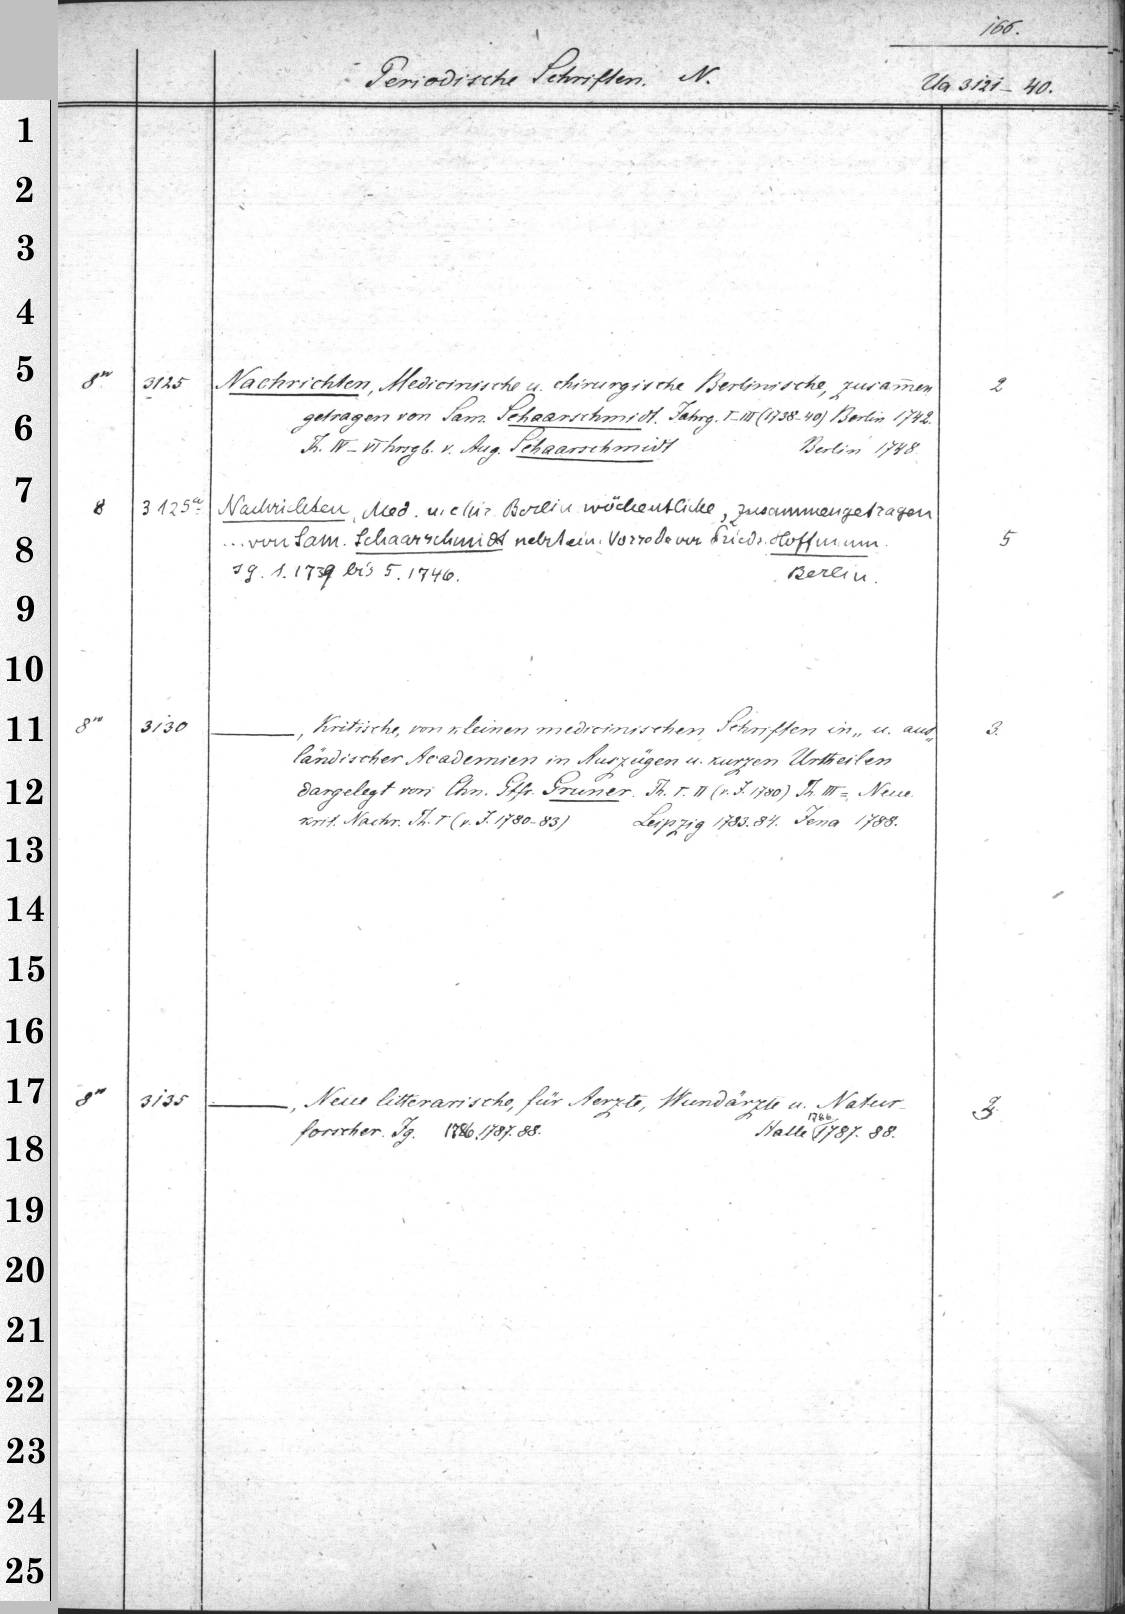 166.
Periodische Schriften. N.
Ua 3121-40.
1
2
3
4
5
8vo 3125 Nachrichten, Medicinische u. chirurgische Berlinische, zusam̄en 2
6
getragen von Sam. Schaarschmidt. Jahrg. I-III (1738-40) Berlin 1742.
Th. IV-VI hrsgb. v. Aug. Schaarschmidt Berlin 1748
7
8 3125a Nachrichten, Med. u. chir. Berlin. wöchentliche, zusammengetragen
8
... von Sam. Schaarschmidt nebst ein. Vorrede von Friedr. Hoffmann. 5
Jg. 1. 1739 bis 5. 1746. Berlin.
9
10
11
8vo 3130 ———, Kritische, von kleinen medicinischen Schriften in„ u. aus„ 3.
ländischer Academien in Auszügen u. kurzen Urtheilen
12
dargelegt von Chn. Gtfr. Gruner. Th. I. II (v. J. 1780) Th. III = Neue
krit. Nachr. Th. I (v. J. 1780-83) Leipzig 1783.84. Jena 1788.
13
14
15
16
17
8vo 3135 ———, Neue litterarische, für Aerzte, Wundärzte u. Natur-
1786
forscher. Jg. 1786.1787.88. Halle 1787. 88.
18
19
20
21
22
23
24
25